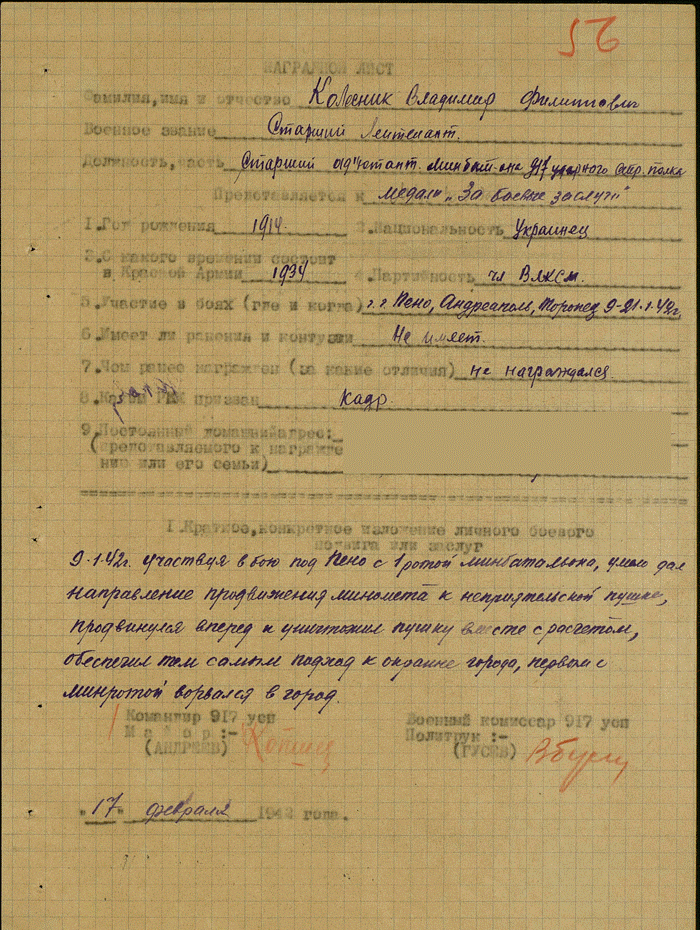 52
НАГРАДНОЙ ЛИСТ
Фамилия, имя и отчество Колесник Владимир Филиппович
Военное звание Старший Лейтенант.
Должность, часть Старший адъютант минбат-она 917 ударного стр. полка
Представляется к медали "За боевые заслуги"
1. Год рождения 1914. 2. Национальность Украинец
3. С какого времени состоит
в Красной Армии 1934 4. Партийность чл ВЛКСМ.
5. Участие в боях (где и когда) г.г Пено, Андреаполь, Торопец 9-21.1.42г.
6. Имеет ли ранения и контузии Не имеет.
7. Чем ранее награжден (за какие отличия) не награждался
8. Каким РВК призван кадр.
9. Постоянный домашний адрес:
(представляемого к награжде
нию или его семьи)
I. Краткое, конкретное изложение личного боевого
подвига или заслуг
9.1.42г. участвуя в бою под Пено с 1 ротой минбатальона, умело дал
направление продвижения миномета к неприятельской пушке,
продвинулся вперед и уничтожил пушку вместе с расчетом,
обеспечил тем самым подход к окраине города, первым с
минротой ворвался в город.
Командир 917 усп Военный комиссар 917 усп
Майор:- Политрук :-
(АНДРЕЕВ) (ГУСЕВ)
"17" февраля 1942 года.